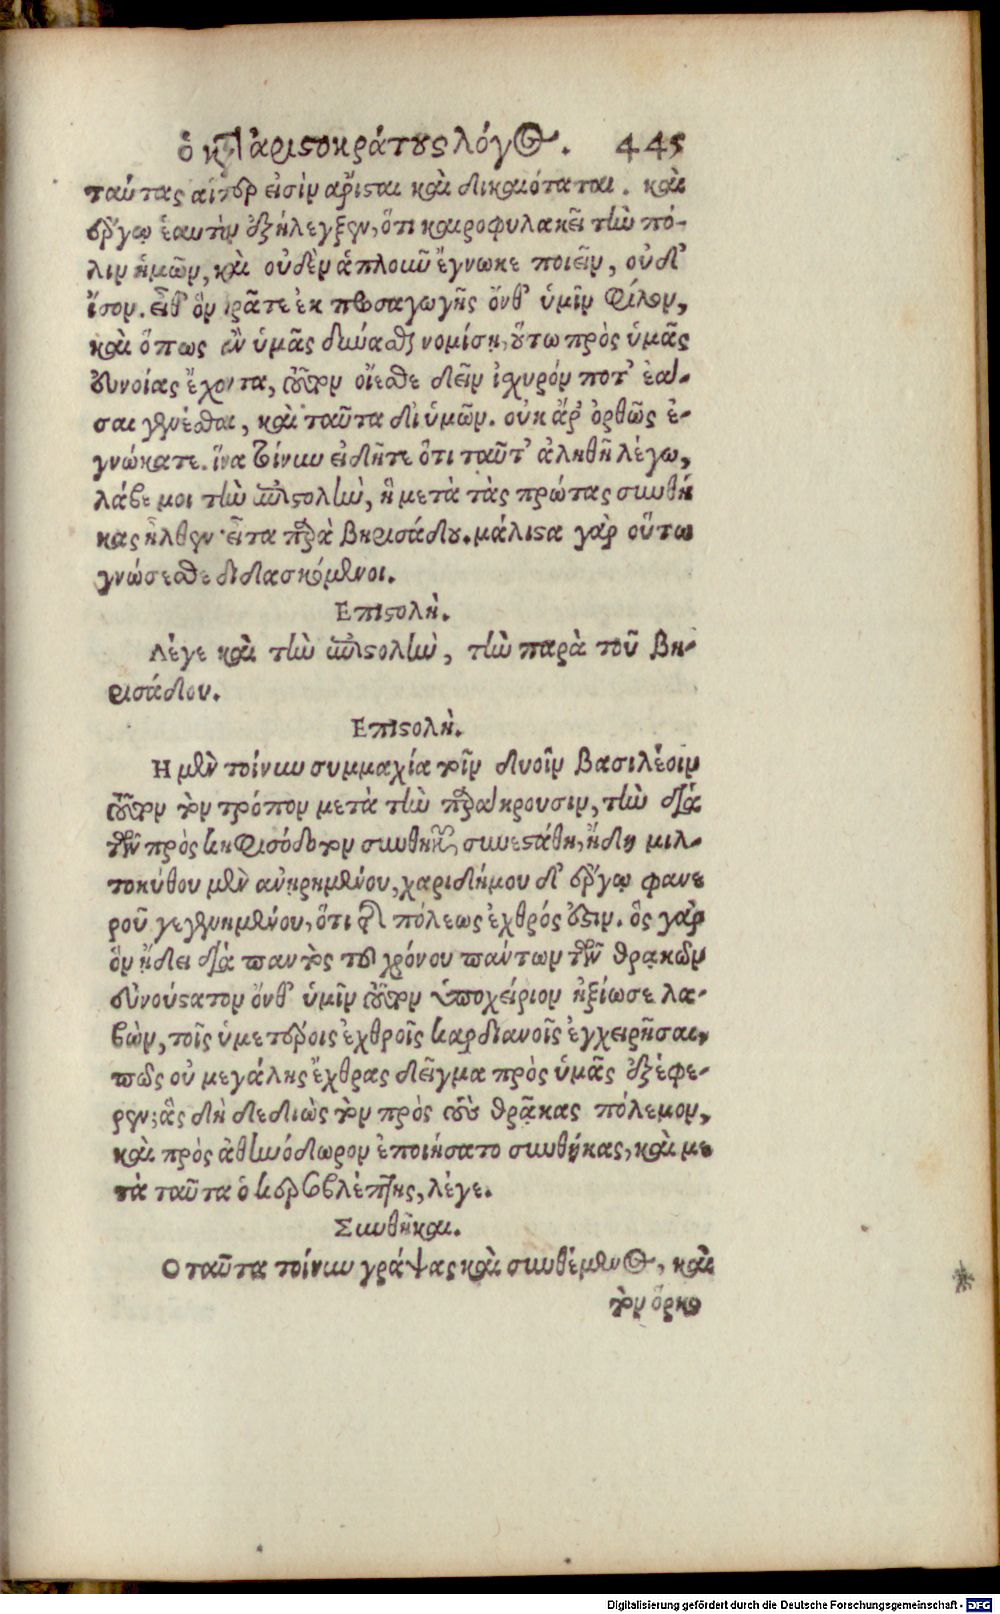 ὁ κατ' ἀριστοκράτους λόγος. 445
ταύτας αἵπερ εἰσὶν ἄρισται καὶ δικαιόταται. καὶ
ἔργῳ ἑαυτὴν ἐξήλεγξεν, ὅτι καιροφυλακεῖ τὴν πό-
λιν ἡμῶν, καὶ οὐδὲν ἁπλοῦν ἔγνωκε ποιεῖν, οὐδ'
ἴσον. εἶθ' ὃν ὁρᾶτε ἐκ προσαγωγῆς ὄνθ' ὑμῖν φίλον,
καὶ ὅπως ἂν ὑμᾶς δύνασθαι νομίσῃ, οὕτω πρὸς ὑμᾶς
εὐνοίας ἔχοντα, τοῦτον οἴεσθε δεῖν ἰσχυρόν ποτ' ἐᾶ-
σαι γενέσθαι, καὶ ταῦτα δι' ὑμῶν. οὐκ ἄρ' ὀρθῶς ἐ-
γνώκατε. ἵνα τοίνυν εἰδῆτε ὅτι ταῦτ' ἀληθῆ λέγω,
λάβε μοι τὴν ἐπιστολὴν, ἣ μετὰ τὰς πρώτας συνθή
κας ἦλθεν· εἶτα παρὰ Βηρισάδου. μάλιστα γὰρ οὕτω
γνώσεσθε διδασκόμενοι.
Επιστολή.
Λέγε καὶ τὴν ἐπιστολὴν, τὴν παρὰ τοῦ Βη-
ρισάδου.
Επιστολὴ.
Η μὲν τοίνυν συμμαχία τοῖν δυοῖν βασιλέοιν
τοῦτον τὸν τρόπον μετὰ τὴν παράκρουσιν, τὴν διὰ
τῶν πρὸς κηφισόδοτον συνθηκῶν, συνεστάθη, ἤδη μιλ-
τοκύθου μὲν ἀνῃρημένου, χαριδήμου δ' ἔργῳ φανε
ροῦ γεγενημένου, ὅτι τῆς πόλεως ἐχθρός ἐστιν. ὃς γὰρ
ὃν ᾔδει διὰ παντὸς τοῦ χρόνου πάντων τῶν θρᾳκῶν
εὐνούστατον ὄνθ' ὑμῖν τοῦτον ὑποχείριον ἠξίωσε λα-
βὼν, τοῖς ὑμετέροις ἐχθροῖς καρδιανοῖς ἐγχειρῆσαι,
πῶς οὐ μεγάλης ἔχθρας δεῖγμα πρὸς ὑμᾶς ἐξέφε-
ρεν; ἃς δὴ δεδιὼς τὸν πρὸς τοὺς θρᾷκας πόλεμον,
καὶ πρὸς ἀθηνόδωρον ἐποιήσατο συνθήκας, καὶ με
τὰ ταῦτα ὁ κερσοβλέπτης, λέγε.
Συνθῆκαι.
Ο ταῦτα τοίνυν γράψας καὶ συνθέμενος, καὶ
τὸν ὅρκο
Digitalisierung gefördert durch die Deutsche Forschungsgemeinschaft - DFG